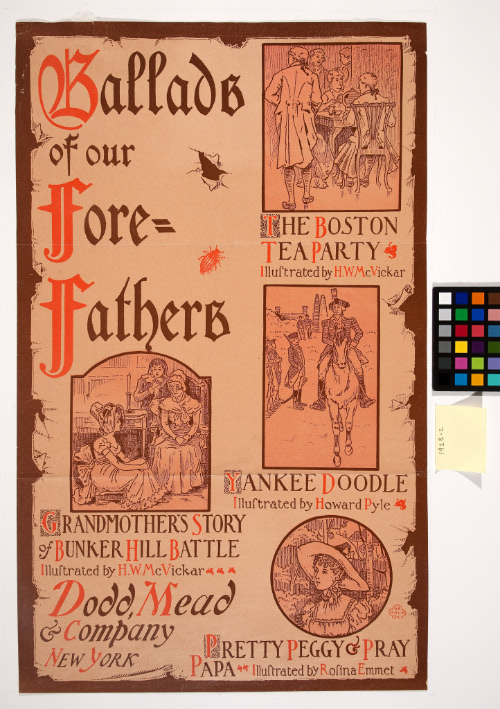 Ballads
of our
Fore=
Fathers
THE BOSTON
TEA PARTY
Illustrated by H.W.McVickar
YANKEE DOODLE
Illustrated by Howard Pyle
GRANDMOTHER'S STORY
of BUNKER HILL BATTLE
Illustrated by H.W.McVickar
PRETTY PEGGY & PRAY
PAPA Illustrated by Rosina Emmet
Dodd, Mead
& Company
NEW YORK